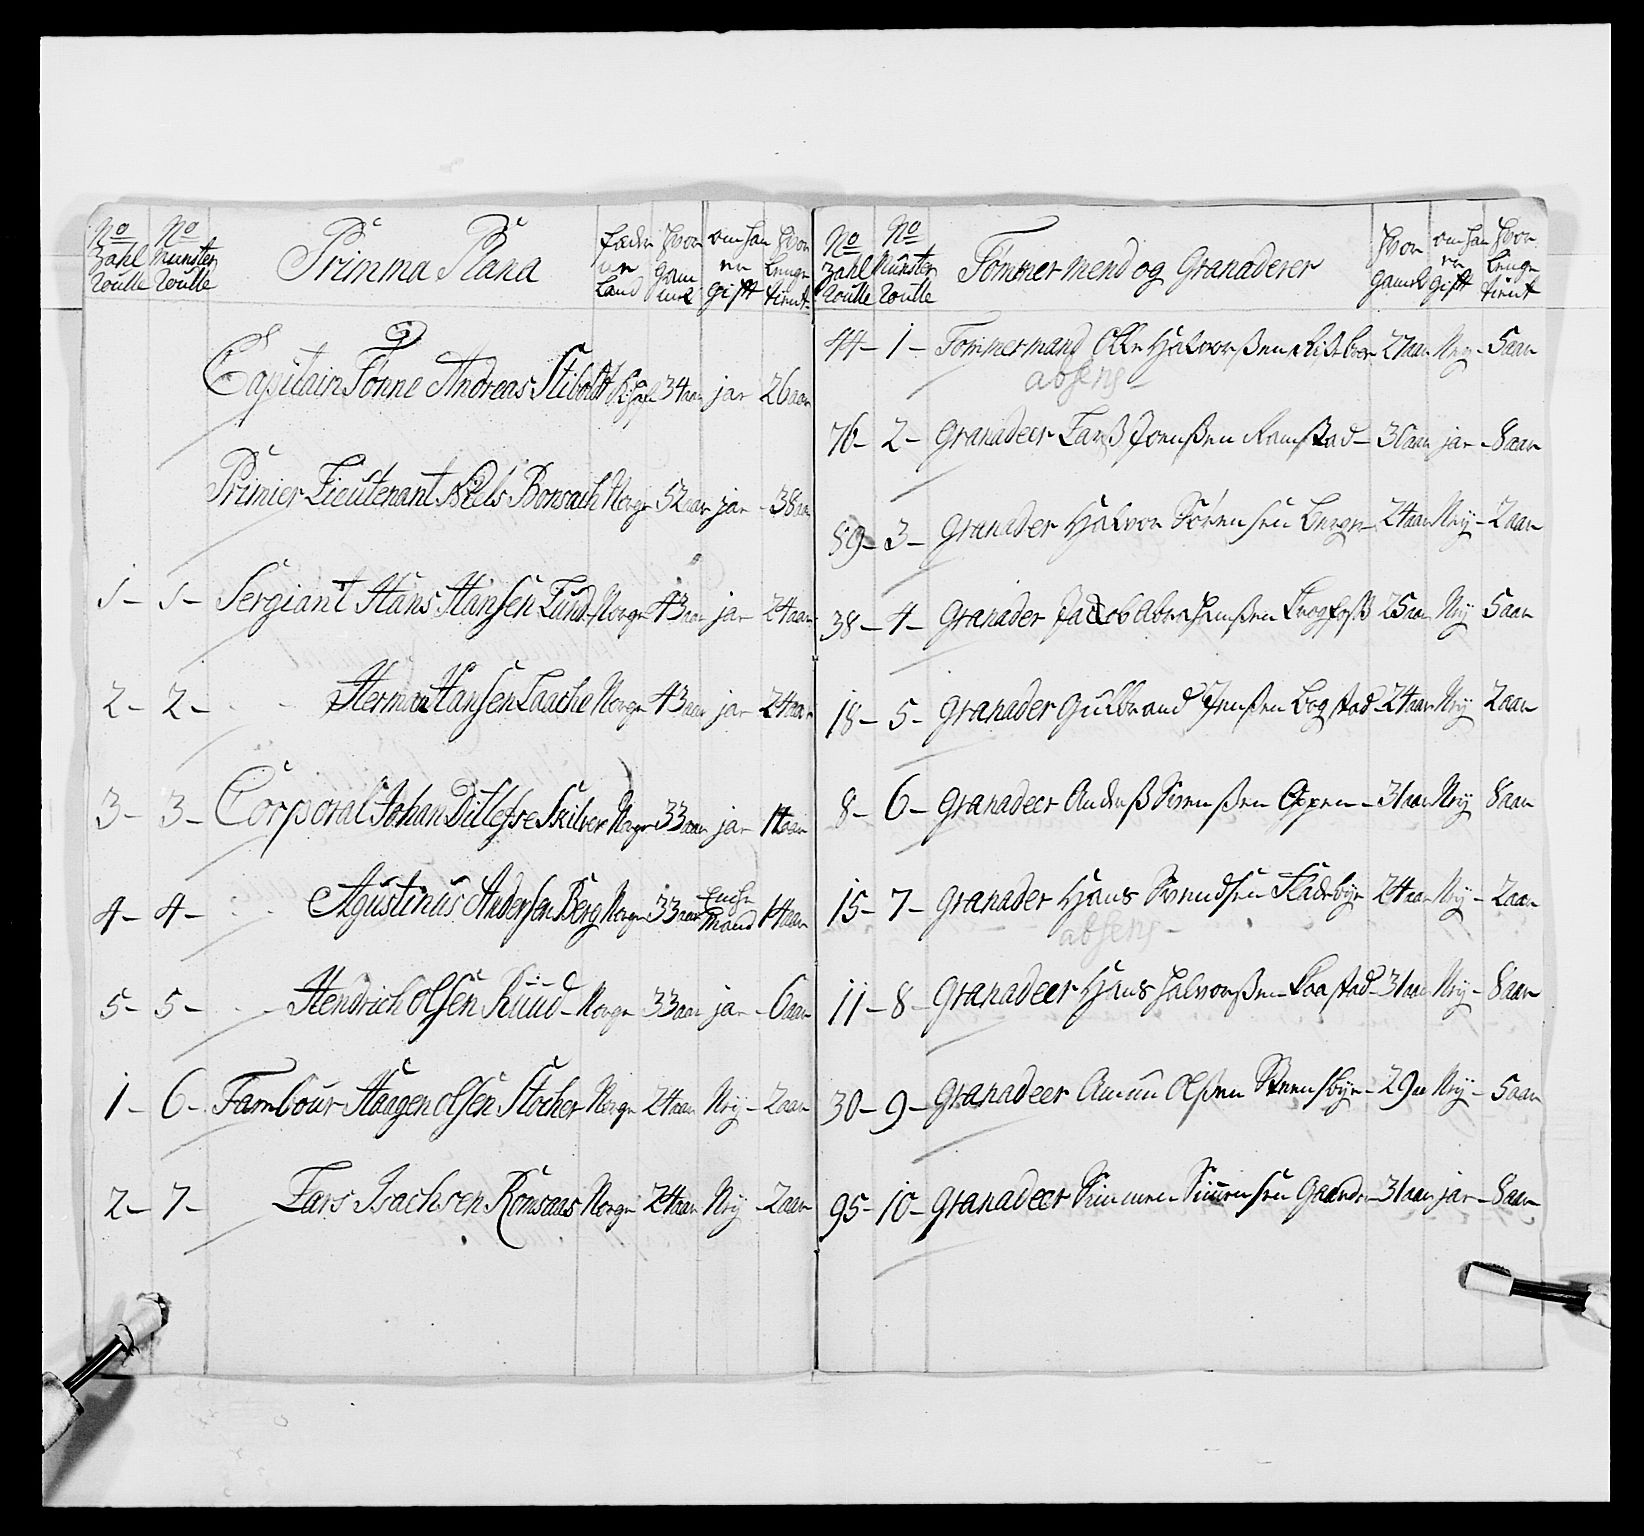 No Zahl Roulle No Munster Roulle Primma Plana fæderne Land hvor gammel om han er gifft hvor lenge tient
Capitain Tønne Andreas Stiboldt 34 aar ja 26 aar
Primier Lieutenant Niels Bonsach Norge 52 aar ja 38 aar
1 - 1 - Sergiant Hans Hansen Lund Norge 43 aar ja 24 aar
2 - 2 - Herman Hansen Laache Norge 43 aar ja 24 aar
3 - 3 - Corporal Johan Ditlefse Skilver Norge 33 aar ja 14 aar
4 - 4 - Agustinus Andersen Berg Norge 33 aar Enche Mand 14 aar
5 - 5 - Hendrich Olsen Ruud - Norge 33 aar ja - 6 aar
1 - 6 - Tambour Haagen Olsen Stocher Norge 24 aar Ney - 2 aar
2 - 7 - Lars Isachsen Romsaas Norge 24 aar Ney - 2 aar
No Zahl Roulle No Munster Roulle Tømmermend og Granaderer hvor gamel om han er gifft hvor lenge tient
44 - 1 - Tømmermand Olle Halvorsen 27 aar Ney - 5 aar
absens -
76 - 2 - Granadeer Larß Jonßen Ramstad - 30 aar ja - 8 aar
89 - 3 - Granader Halvor Sørensen Berge - 24 aar Ney - 2 aar
38 - 4 - Granader Jacob Abrahamßen 25 aar Ney 5 aar
18 - 5 - Granader Gulbrand Jensen Bogstad - 24 aar Ney 2 aar
8 - 6 - Granadeer Anderß Svenßen Oppen - 31 aar Ney 8 aar
15 - 7 - Granader Hans Svendsen Fladebye 24 aar Ney - 2 aar
absens -
11 - 8 - Granadeer Hans Halvorßen Taastad - 31 aar Ney - 8 aar
30 - 9 - Granadeer Amun Olßen Steensbye - 29 aar Ney - 5 aar
95 - 10 - Granadeer Simmen Simensen Gaarder 31 aar ja - 8 aar